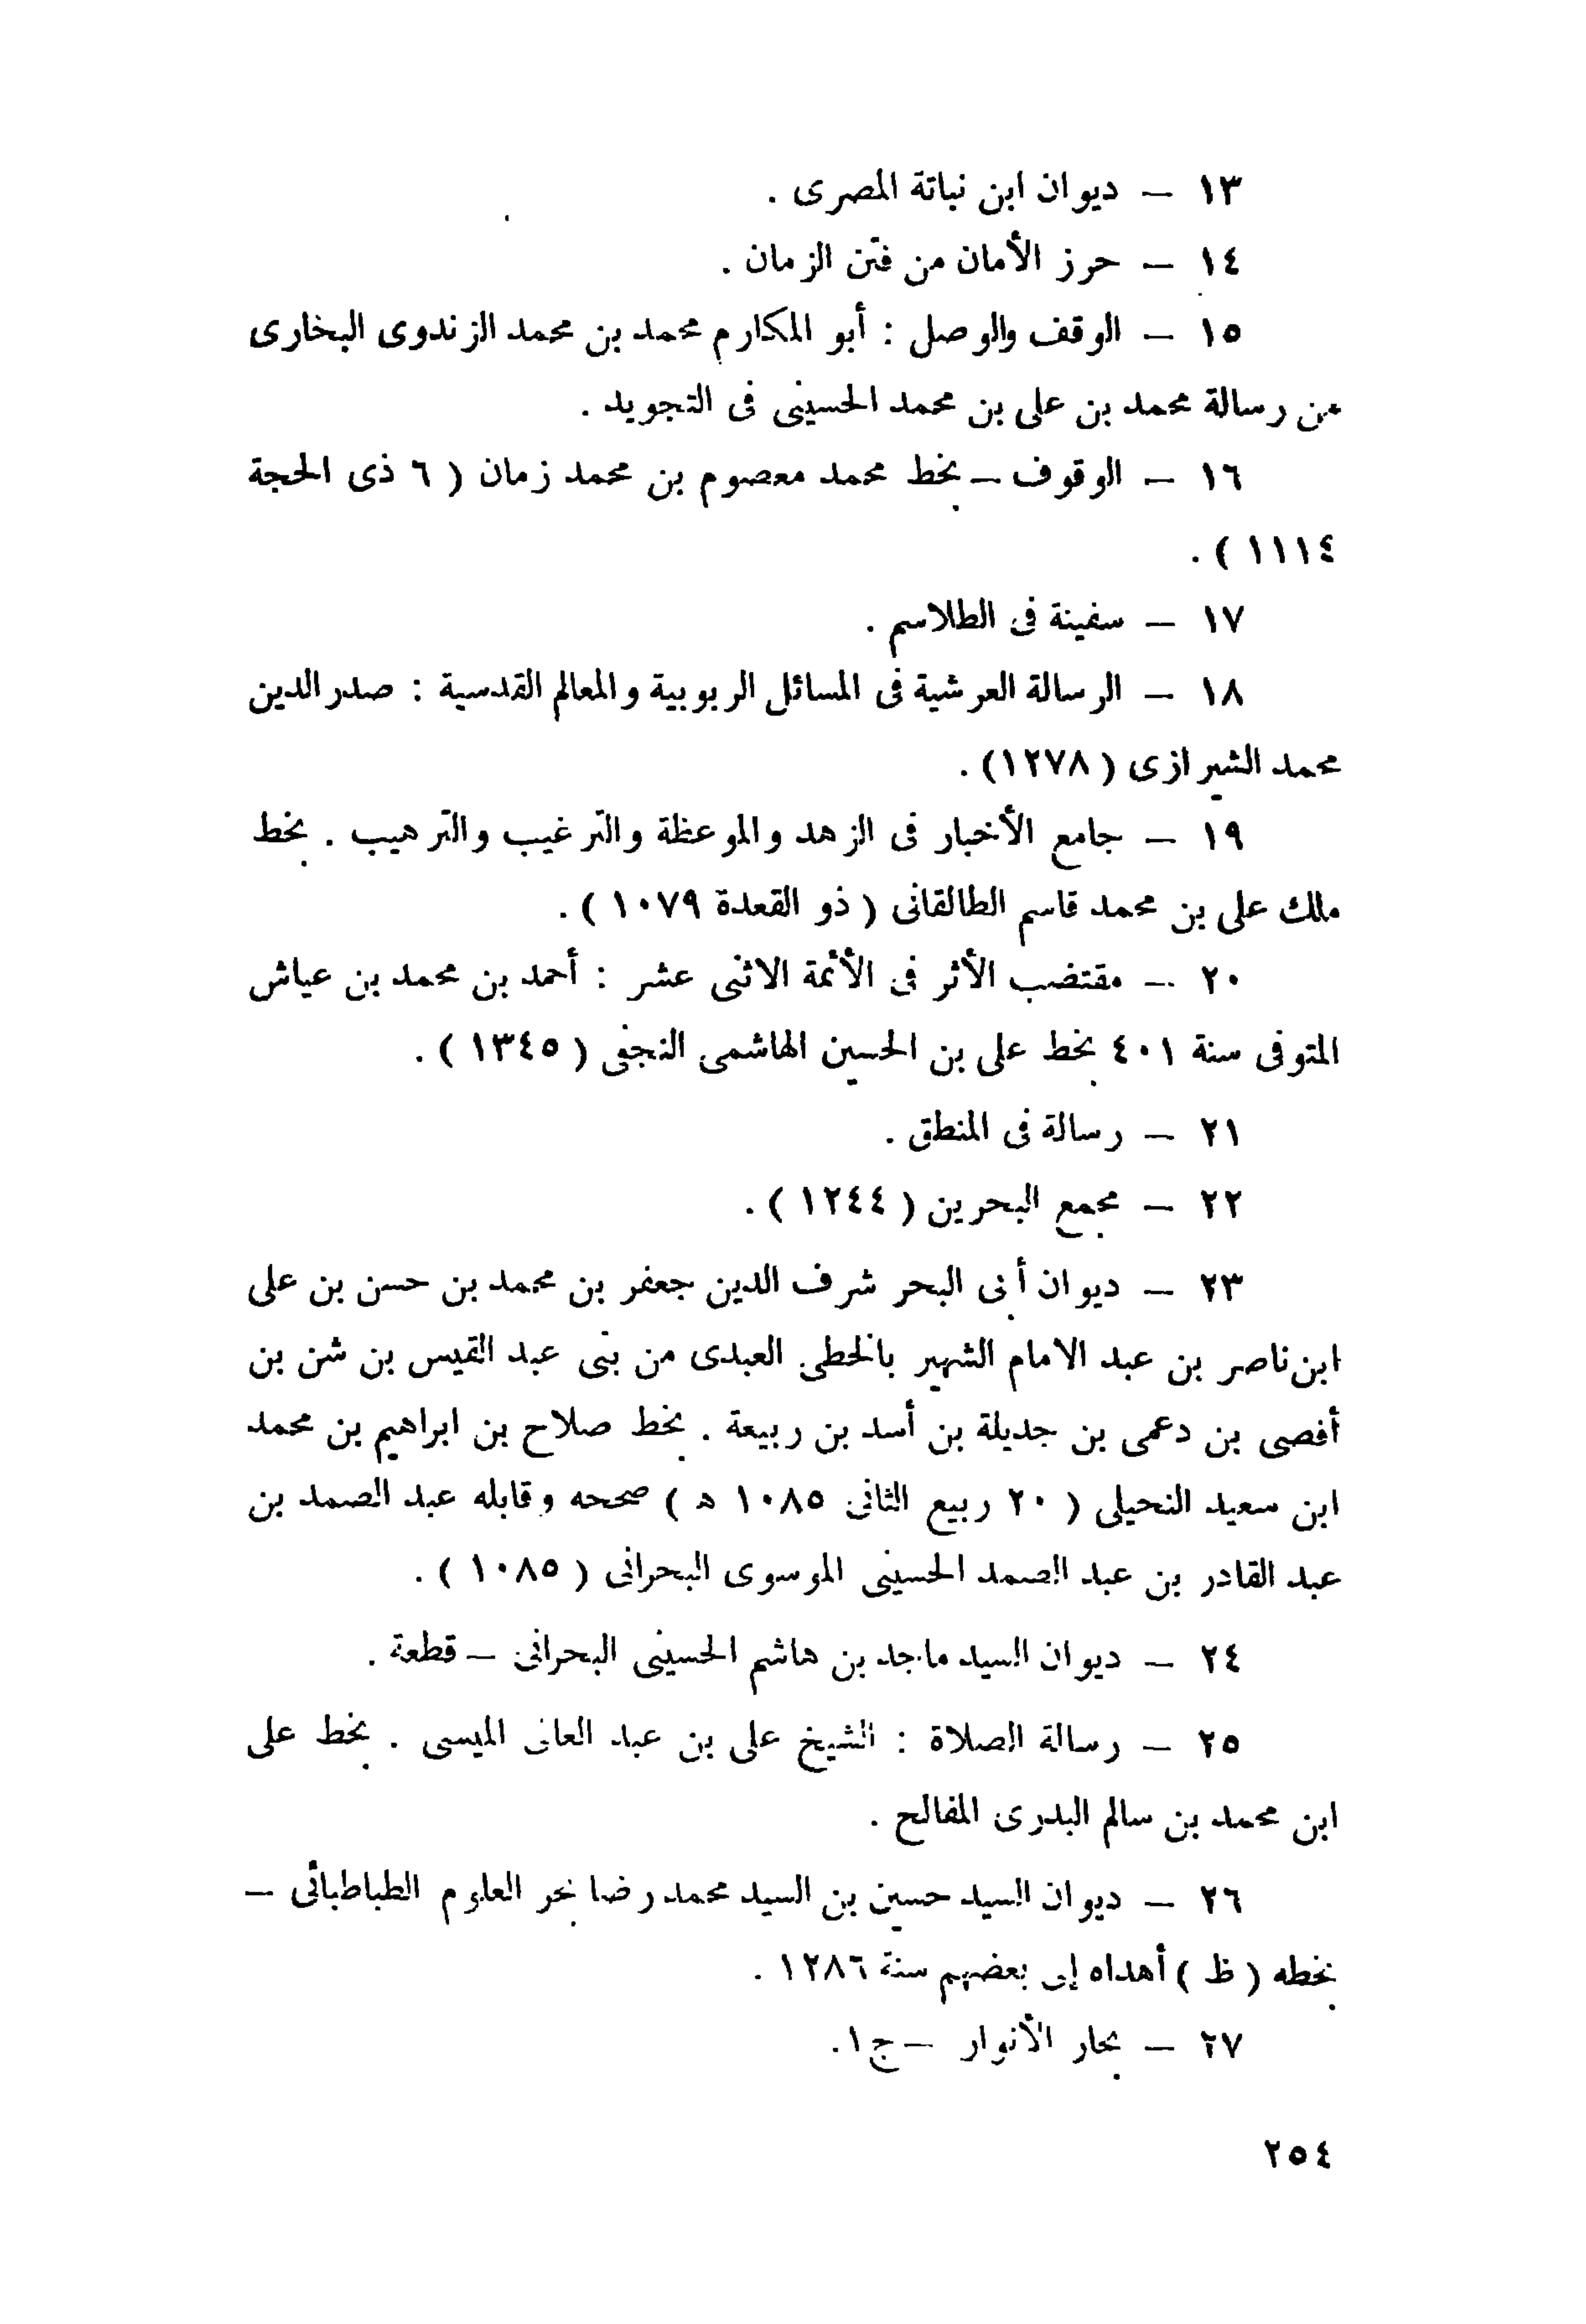 ١٣ — ديوان ابن نباتة المصرى .
١٤ — حرز الأمان من فتن الزمان .
١٥ — الوقف والوصل : أبو المكارم محمد بن محمد الزندوى البخارى
من رسالة محمد بن على بن محمد الحسينى فى التجويد .
١٦ — الوقوف — بخط محمد معصوم بن محمد زمان ( ٦ ذى الحجة
١١١٤ ) .
١٧ — سفينة فى الطلاسم .
١٨ — الرسالة العرشية فى المسائل الربوبية والمعالم القدسية : صدر الدين
محمد الشيرازى ( ١٢٧٨) .
١٩ — جامع الأخبار فى الزهد والموعظة والترغيب والترهيب . بخط
ملك على بن محمد قاسم الطالقانى ( ذو القعدة ١٠٧٩ ) .
٢٠ — مقتضب الأثر فى الأئمة الاثنى عشر : أحمد بن محمد بن عياش
المتوفى سنة ٤٠١ بخط على بن الحسين الهاشمى النجفى ( ١٣٤٥ ) .
٢١ — رسالة فى المنطق .
٢٢ — مجمع البحرين ( ١٢٤٤ ) .
٢٣ — ديوان أبى البحر شرف الدين جعفر بن محمد بن حسن بن على
ابن ناصر بن عبد الامام الشهير بالخطى العبدى من بنى عبد القيس بن شن بن
أفصى بن دعمى بن جديلة بن أسد بن ربيعة . بخط صلاح بن ابراهيم بن محمد
ابن سعيد النحيلى ( ٢٠ ربيع الثانى ١٠٨٥ ه ) صححه وقابله عبد الصمد بن
عبد القادر بن عبد الصمد الحسينى الموسوى البحرانى ( ١٠٨٥ ) .
٢٤ — ديوان السيد ماجد بن هاشم الحسينى البحرانى — قطعة .
٢٥ — رسالة الصلاة : الشيخ على بن عبد العالى الميسى . بخط على
ابن محمد بن سالم البدرى المفالح .
٢٦ — ديوان السيد حسين بن السيد محمد رضا بحر العلوم الطباطبائى —
بخطه ( ظ ) أهداه إلى بعضهم سنة ١٢٨٦ .
٢٧ — بحار الأنوار — ج ١ .
٢٥٤